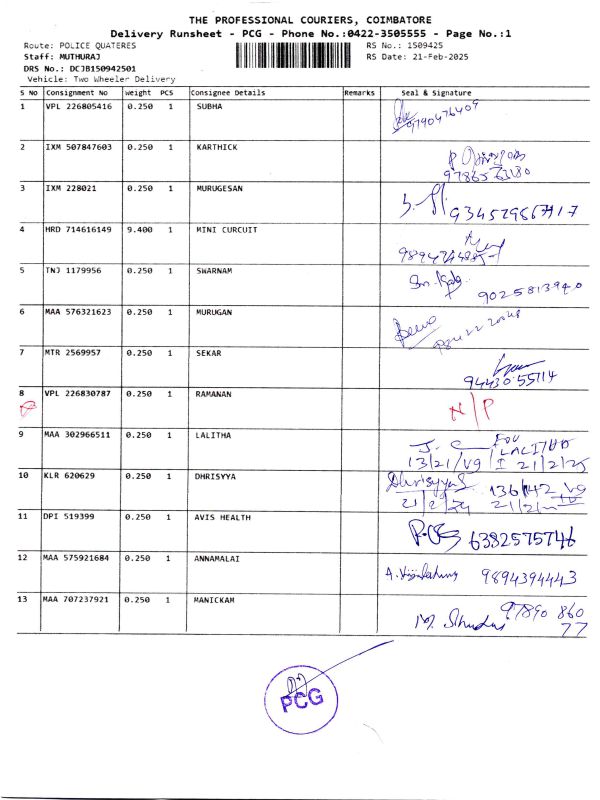 THE PROFESSIONAL COURIERS, COIMBATORE
Delivery Runsheet - PCG - Phone No.:0422-3505555 - Page No.:1
Route: POLICE QUATERES RS No.: 1509425
Staff: MUTHURAJ RS Date: 21-Feb-2025
DRS No.: DCJB150942501
Vehicle: Two Wheeler Delivery
S No Consignment No Weight PCS Consignee Details Remarks Seal & Signature
1 VPL 226805416 0.250 1 SUBHA 9790476409
2 IXM 507847603 0.250 1 KARTHICK
9786573180
3 IXM 228021 0.250 1 MURUGESAN
4 HRD 714616149 9.400 1 MINI CURCUIT
5 TNJ 1179956 0.250 1 SWARNAM
9025813940
6 MAA 576321623 0.250 1 MURUGAN
7 MTR 2569957 0.250 1 SEKAR
9443055114
8 VPL 226830787 0.250 1 RAMANAN N/P
9 MAA 302966511 0.250 1 LALITHA J. C FOU LALITHA
13/21/V9 I 21/2/25
10 KLR 620629 0.250 1 DHRISYYA Dhrisyya S 136/142 V9
11 DPI 519399 0.250 1 AVIS HEALTH 6382575746
12 MAA 575921684 0.250 1 ANNAMALAI A. 9894394443
13 MAA 707237921 0.250 1 MANICKAM M. 97890 860
77
PCG